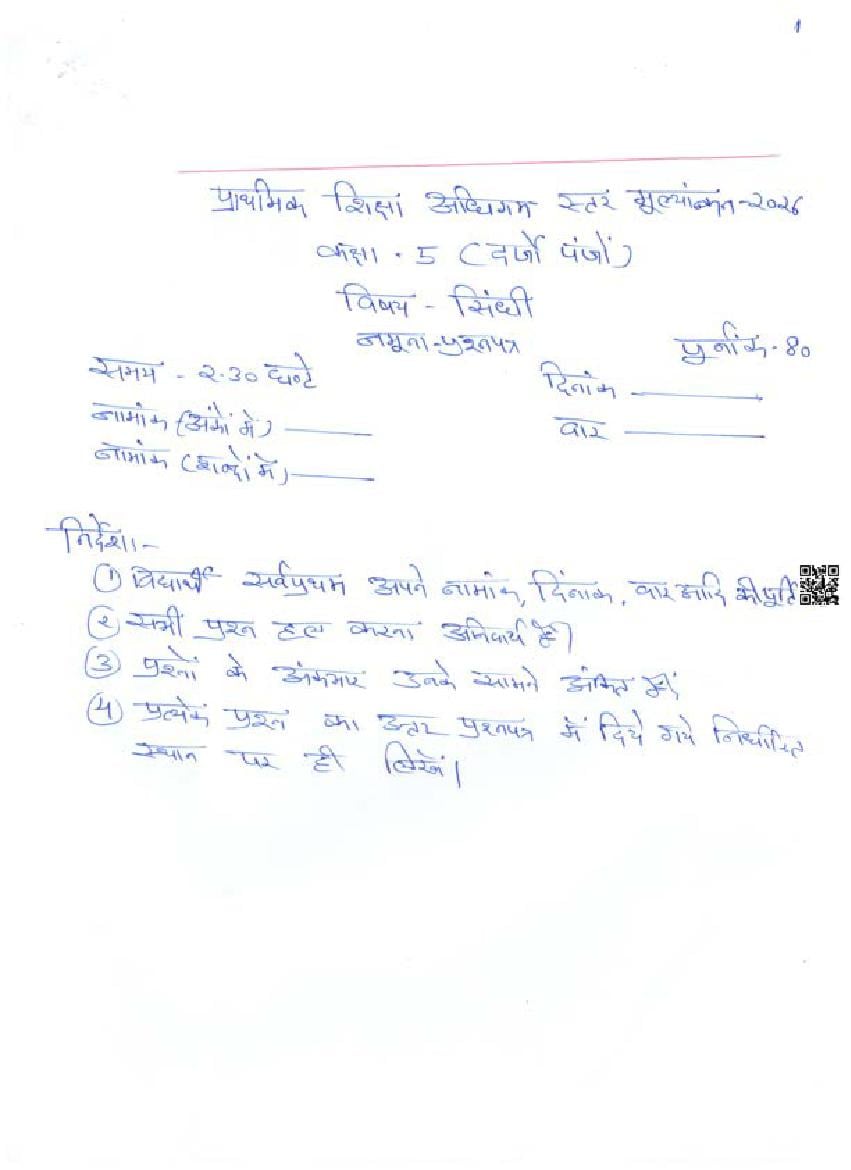 1
प्राथमिक शिक्षा अधिगम स्तर मूल्यांकन-२०२६
कक्षा - 5 (दर्जो पंजों)
विषय - सिंधी
नमूना-प्रश्नपत्र
पूर्नांक-80
समय - २.३० घण्टे
दिनांक
नामांक (अंकों में)
वार
नामांक (शब्दों में)
निर्देश:-
① विद्यार्थी सर्वप्रथम अपने नामांक, दिंनाक, वार आदि की पूर्ति
② सभी प्रश्न हल करना अनिवार्य है।
③ प्रश्नों के अंकभार उनके सामने अंकित हैं।
④ प्रत्येक प्रश्न का उत्तर प्रश्नपत्र में दिये गये निर्धारित
स्थान पर ही लिखें।